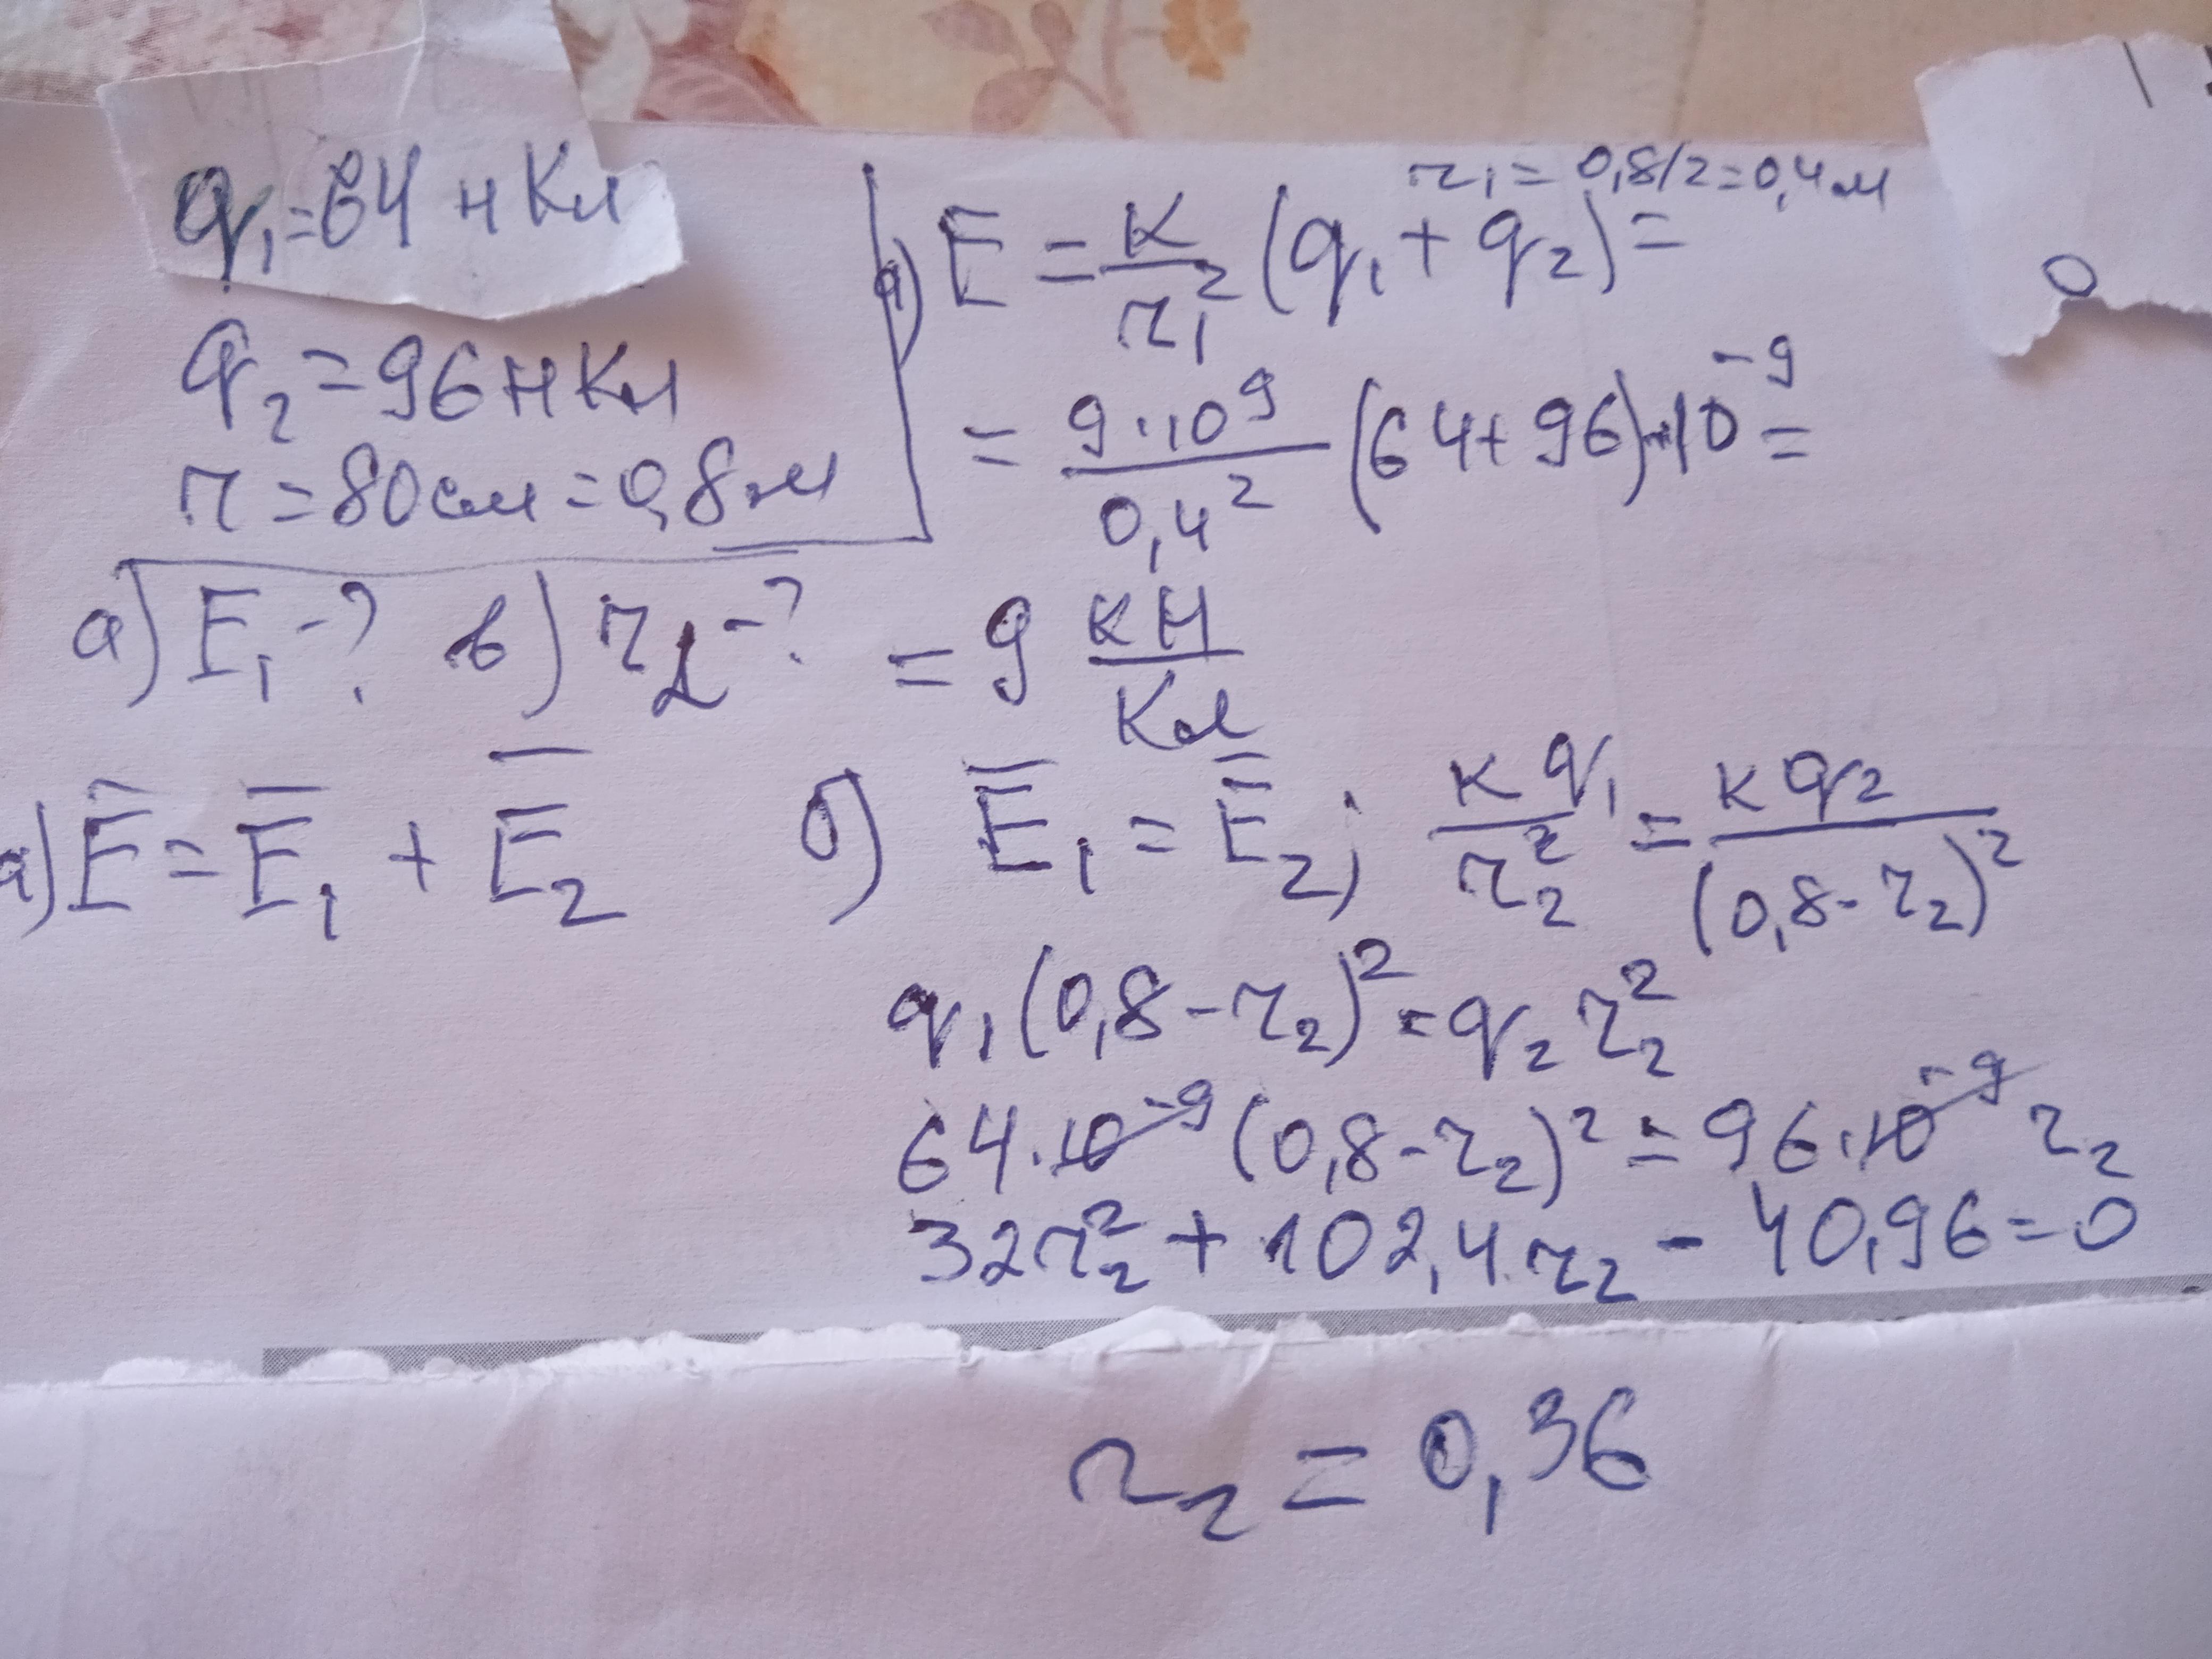 q₁=64 нКл
q₂=96 нКл
r=80см=0,8м
а) E₁-? б) r₂-?
а) E̅=E̅₁+E̅₂
r₁=0,8/2=0,4м
а) E=K/r₁²(q₁+q₂)=
=9·10⁹/0,4²(64+96)·10⁻⁹=
=9 кН/Кл
б) E̅₁=E̅₂; кq₁/r₂²=кq₂/(0,8-r₂)²
q₁(0,8-r₂)²=q₂r₂²
64·10⁻⁹(0,8-r₂)²=96·10⁻⁹r₂
32r₂²+102,4r₂-40,96=0
r₂=0,36